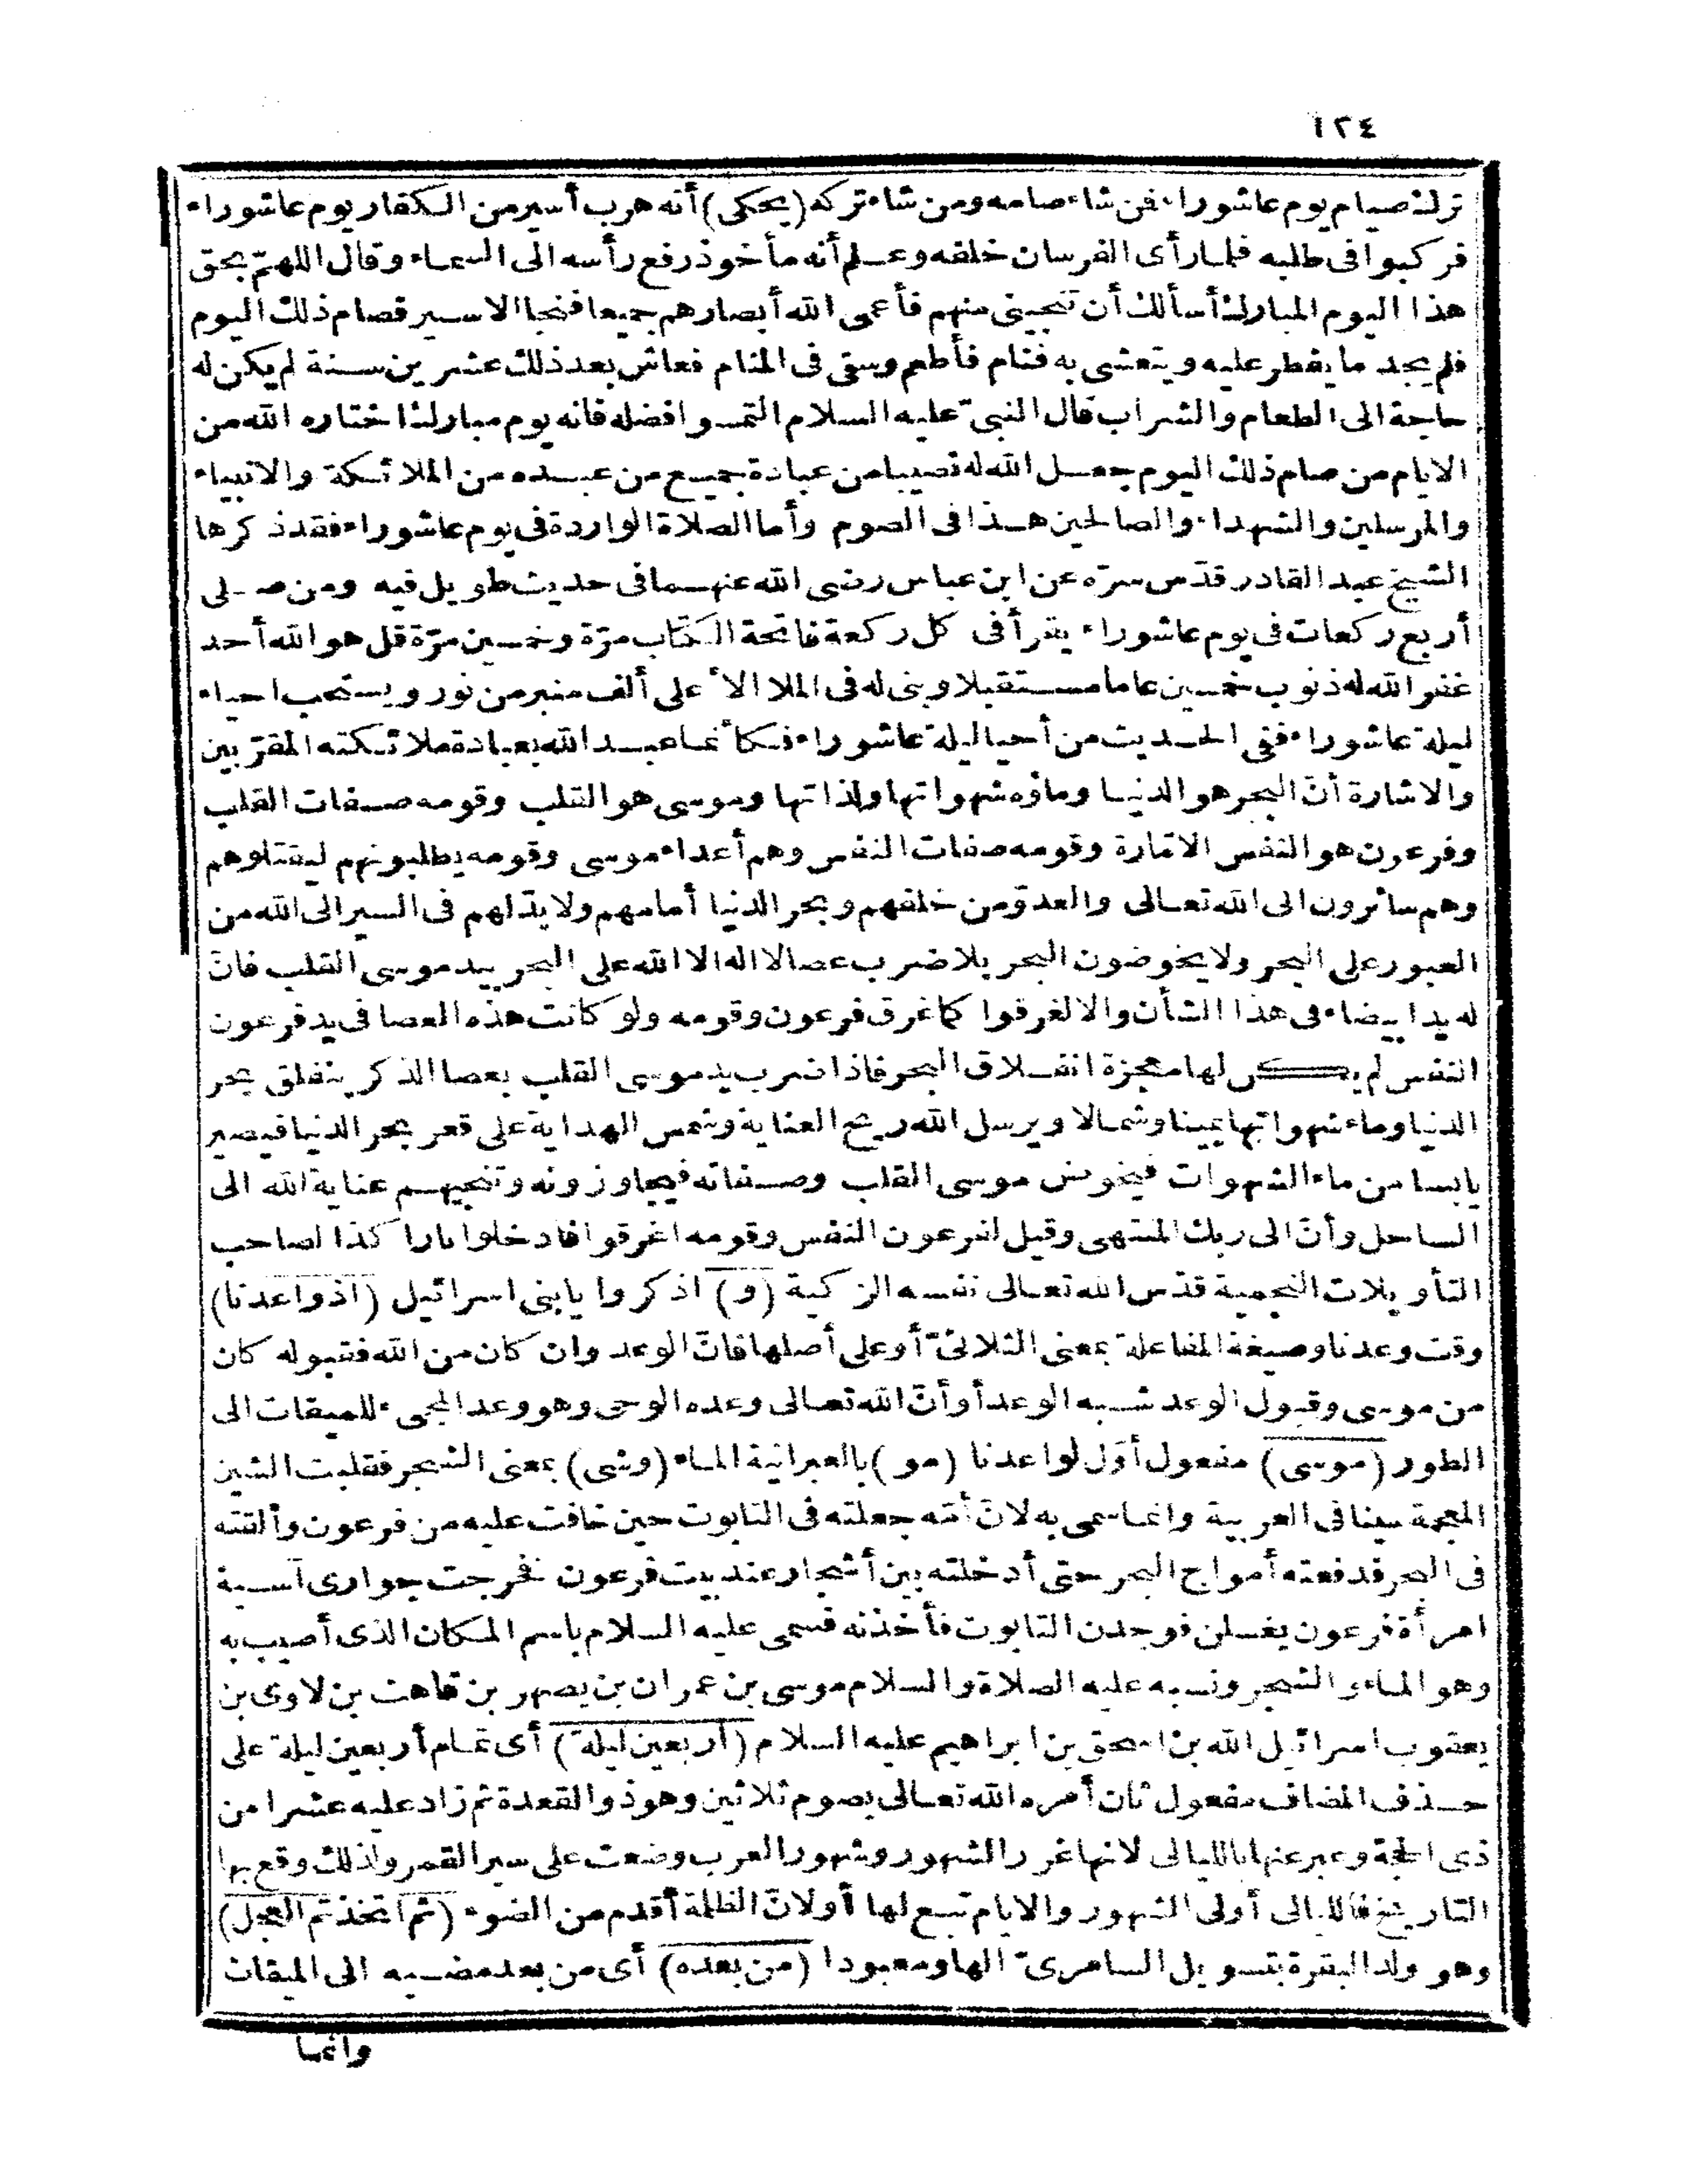 ١٣٤
ترك صيام يوم عاشوراء فمن شاء صامه ومن شاء تركه (يحكى) أنه هرب أسير من الكفار يوم عاشوراء
فركبوا فى طلبه فلما رأى الفرسان خلفه وعلم أنه مأخوذ رفع رأسه الى السماء وقال اللهم بحق
هذا اليوم المبارك أسألك أن تنجينى منهم فأعمى الله أبصارهم جميعا فنجا الاسير فصام ذلك اليوم
فلم يجد ما يفطر عليه ويتعشى به فنام فأطعم وسقى فى المنام فعاش بعد ذلك عشرين سنة لم يكن له
حاجة الى الطعام والشراب قال النبىّ عليه السلام التمسوا فضله فانه يوم مبارك اختاره الله من
الايام من صام ذلك اليوم جعل الله له نصيبا من عبادة جميع من عبده من الملائكة والانبياء
والمرسلين والشهداء والصالحين هذا فى الصوم وأما الصلاة الواردة فى يوم عاشوراء فقد ذكرها
الشيخ عبد القادر قدّس سرّه عن ابن عباس رضى الله عنهما فى حديث طويل فيه ومن صلى
أربع ركعات فى يوم عاشوراء يقرأ فى كل ركعة فاتحة الكتاب مرّة وخمسين مرّة قل هو الله أحد
غفر الله له ذنوب خمسين عاما مستقبلا وبنى له فى الملا الأعلى ألف منبر من نور ويستحب احياء
ليلة عاشوراء ففى الحديث من أحيا ليلة عاشوراء فكأنما عبد الله بعبادة ملائكته المقرّبين
والاشارة أنّ البحر هو الدنيا وماؤه شهواتها ولذاتها وموسى هو القلب وقومه صفات القلب
وفرعون هو النفس الامّارة وقومه صفات النفس وهم أعداء موسى وقومه يطلبونهم ليقتلوهم
وهم سائرون الى الله تعالى والعدوّ من خلفهم وبحر الدنيا أمامهم ولا بدّ لهم فى السير الى الله من
العبور على البحر ولا يخوضون البحر بلا ضرب عصا لا اله الا الله على البحر بيد موسى القلب فانّ
له يدا بيضاء فى هذا الشأن والا لغرقوا كما غرق فرعون وقومه ولو كانت هذه العصا فى يد فرعون
النفس لم يكن لها معجزة انفلاق البحر فاذا ضرب يد موسى القلب بعصا الذكر ينفلق بحر
الدنيا وماء شهواتها يمينا وشمالا ويرسل الله ريح العناية وشمس الهداية على قعر بحر الدنيا فيصير
يابسا من ماء الشهوات فيخوض موسى القلب وصفاته فيجاوزونه وتنجيهم عناية الله الى
الساحل وأنّ الى ربك المنتهى وقيل لفرعون النفس وقومه اغرقوا فادخلوا نارا كذا لصاحب
التأويلات النجمية قدّس الله تعالى نفسه الزكية (و) اذكروا يا بنى اسرائيل (اذ واعدنا)
وقت وعدنا وصيغة المفاعلة بمعنى الثلاثىّ أو على أصلها فانّ الوعد وان كان من الله فقبوله كان
من موسى وقبول الوعد شبه الوعد أو أنّ الله تعالى وعده الوحى وهو وعد المجىء للميقات الى
الطور (موسى) مفعول أوّل لواعدنا (مو) بالعبرانية الماء (وشى) بمعنى الشجر فقلبت الشين
المعجمة سينا فى العربية وانما سمى به لانّ أمّه جعلته فى التابوت حين خافت عليه من فرعون وألقته
فى البحر فدفعته أمواج البحر حتى أدخلته بين أشجار عند بيت فرعون فخرجت جوارى آسية
امرأة فرعون يغسلن فوجدن التابوت فأخذنه فسمى عليه السلام باسم المكان الذى أصيب به
وهو الماء والشجر ونسبه عليه الصلاة والسلام موسى بن عمران بن يصهر بن قاهت بن لاوى بن
يعقوب اسرائيل الله بن اسحق بن ابراهيم عليه السلام (أربعين ليلة) أى تمام أربعين ليلة على
حذف المضاف مفعول ثان أمره الله تعالى بصوم ثلاثين وهو ذو القعدة ثم زاد عليه عشرا من
ذى الحجة وعبر عنها بالليالى لانها غرر الشهور وشهور العرب وضعت على سير القمر ولذلك وقع بها
التاريخ فالليالى أولى الشهور والايام تبع لها أو لانّ الظلمة أقدم من الضوء (ثم اتخذتم العجل)
وهو ولد البقرة بتسويل السامرىّ الها ومعبودا (من بعده) أى من بعد مضيه الى الميقات
وانما